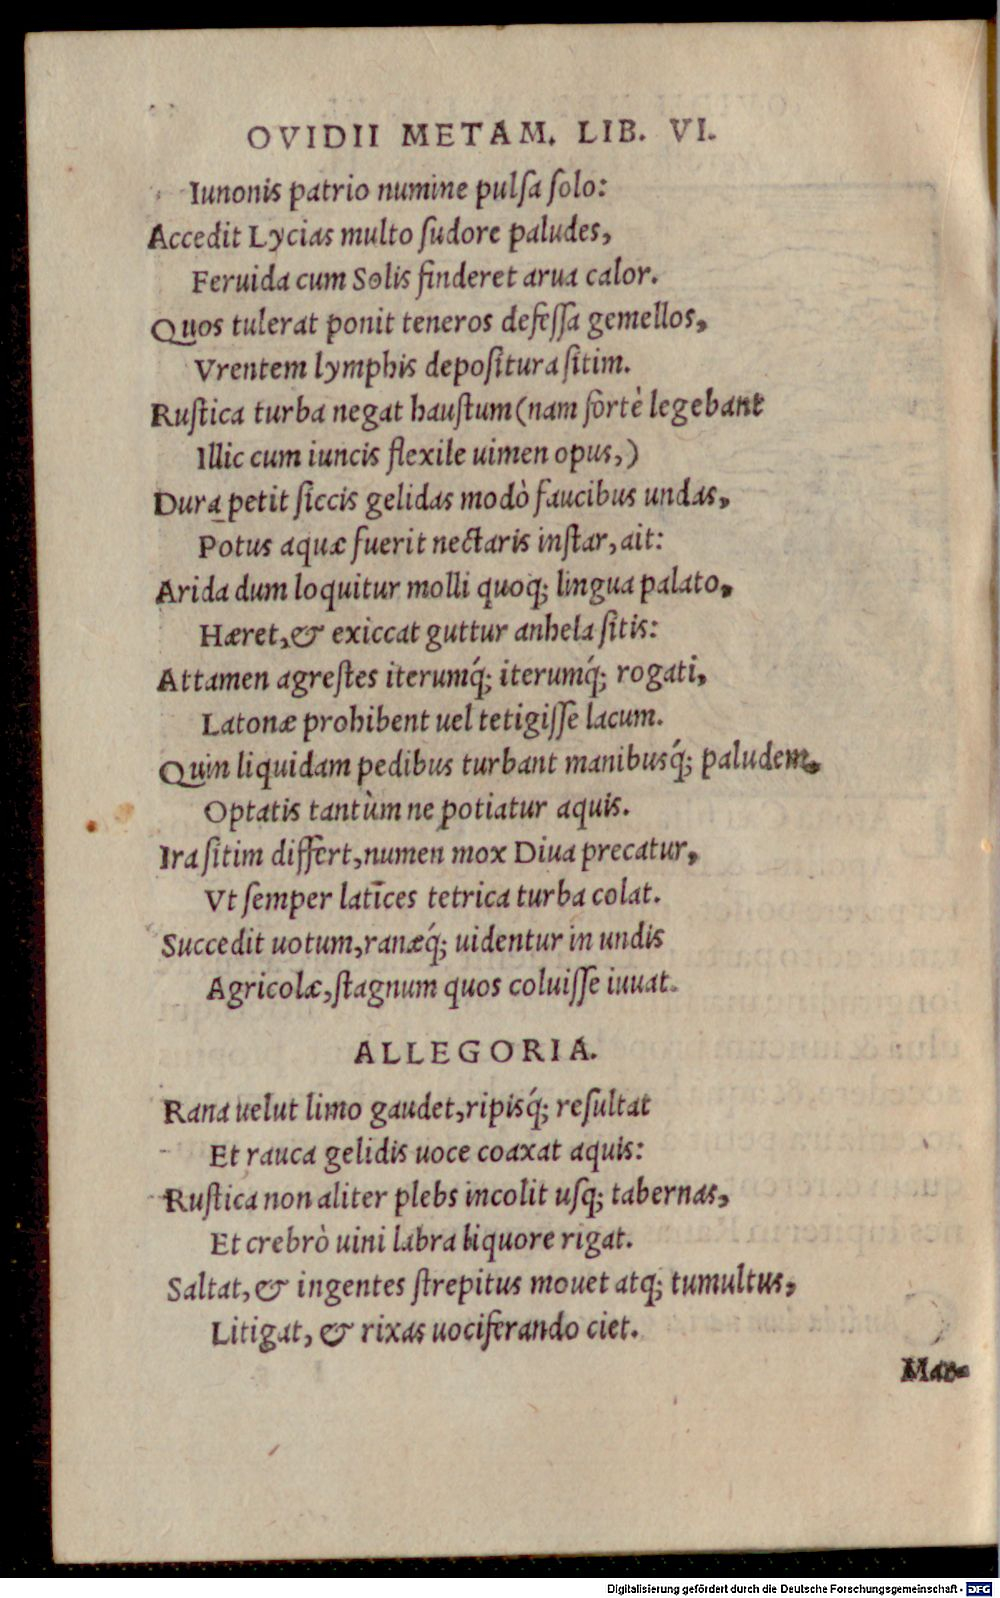 OVIDII METAM. LIB. VI.
Iunonis patrio numine pulſa ſolo:
Accedit Lycias multo ſudore paludes,
Feruida cum Solis finderet arua calor.
Quos tulerat ponit teneros defeſſa gemellos,
Vrentem lymphis depoſitura ſitim.
Ruſtica turba negat hauſtum (nam fortè legebant
Illic cum iuncis flexile uimen opus,)
Dura petit ſiccis gelidas modò faucibus undas,
Potus aquæ fuerit nectaris inſtar, ait:
Arida dum loquitur molli quoq; lingua palato,
Hæret, & exiccat guttur anhela ſitis:
Attamen agreſtes iterumq́; iterumq́; rogati,
Latonæ prohibent uel tetigiſſe lacum.
Quin liquidam pedibus turbant manibusq́; paludem,
Optatis tantùm ne potiatur aquis.
Ira ſitim differt, numen mox Diua precatur,
Vt ſemper latīces tetrica turba colat.
Succedit uotum, ranæq́; uidentur in undis
Agricolæ, ſtagnum quos coluiſſe iuuat.
ALLEGORIA.
Rana uelut limo gaudet, ripisq́; reſultat
Et rauca gelidis uoce coaxat aquis:
Ruſtica non aliter plebs incolit uſq; tabernas,
Et crebrò uini labra liquore rigat.
Saltat, & ingentes ſtrepitus mouet atq; tumultus,
Litigat, & rixas uociferando ciet.
Mar-
Digitalisierung gefördert durch die Deutsche Forschungsgemeinschaft - DFG